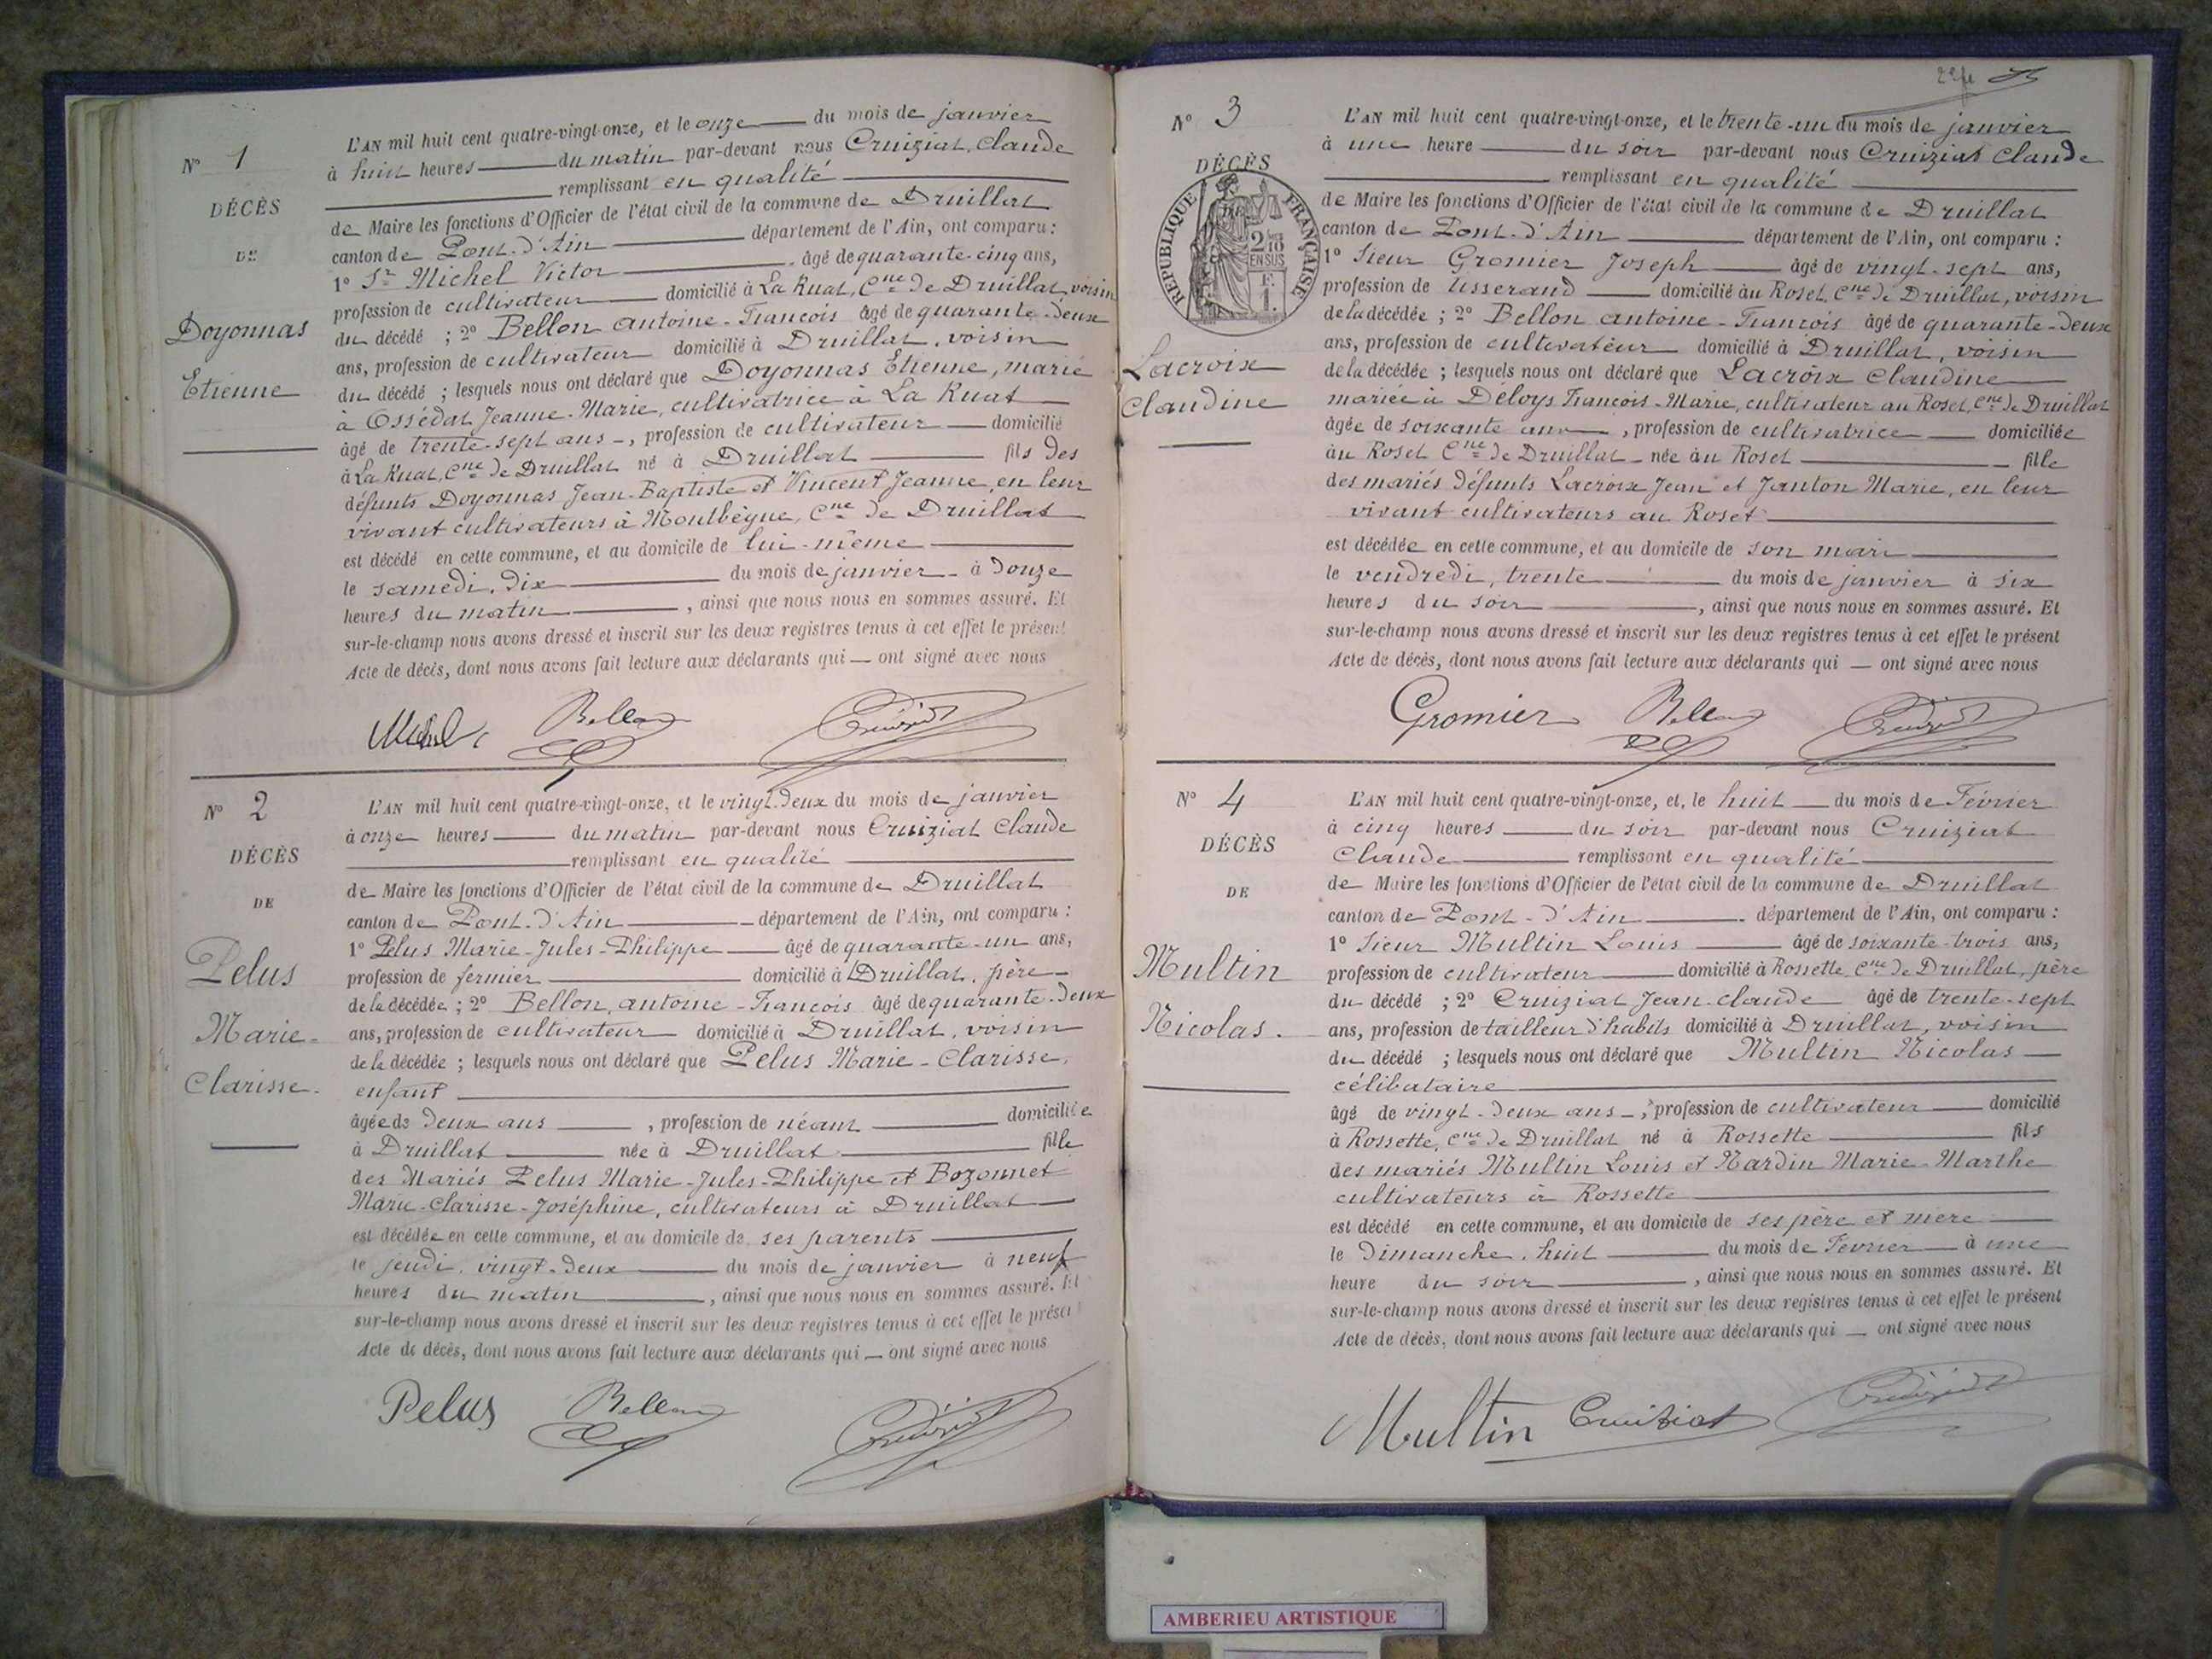 N° 1
DÉCÈS
DE
Doyonnas
Etienne
L'AN mil huit cent quatre-vingt-onze, et le onze du mois de janvier
à huit heures du matin par-devant nous Cruiziat, Claude
remplissant en qualité
de Maire les fonctions d'Officier de l'état civil de la commune de Druillat
canton de Pont-d'Ain département de l'Ain, ont comparu :
1° Sr Michel Victor, âgé de quarante-cinq ans,
profession de cultivateur domicilié à La Ruat, Cne de Druillat, voisin
du décédé ; 2° Bellon antoine-François âgé de quarante-deux
ans, profession de cultivateur domicilié à Druillat, voisin
du décédé ; lesquels nous ont déclaré que Doyonnas Etienne, marié
à Ossédat Jeanne-Marie, cultivatrice à La Ruat
âgé de trente-sept ans, profession de cultivateur domicilié
à La Ruat, Cne de Druillat né à Druillat fils des
défunts Doyonnas Jean-Baptiste et Vincent Jeanne, en leur
vivant cultivateurs à Montbègue, Cne de Druillat
est décédé en cette commune, et au domicile de lui-même
le samedi, dix du mois de janvier à douze
heures du matin, ainsi que nous nous en sommes assuré. Et
sur-le-champ nous avons dressé et inscrit sur les deux registres tenus à cet effet le présent
Acte de décès, dont nous avons fait lecture aux déclarants qui — ont signé avec nous
Michel Bellon Cruiziat
N° 2
DÉCÈS
DE
Pelus
Marie-
Clarisse.
L'AN mil huit cent quatre-vingt-onze, et le vingt-deux du mois de janvier
à onze heures du matin par-devant nous Cruiziat Claude
remplissant en qualité
de Maire les fonctions d'Officier de l'état civil de la commune de Druillat
canton de Pont-d'Ain département de l'Ain, ont comparu :
1° Pelus Marie-Jules-Philippe âgé de quarante-un ans,
profession de fermier domicilié à Druillat, père
de la décédée ; 2° Bellon, antoine-François âgé de quarante-deux
ans, profession de cultivateur domicilié à Druillat, voisin
de la décédée ; lesquels nous ont déclaré que Pelus Marie-Clarisse,
enfant
âgée de deux ans, profession de néant domiciliée
à Druillat née à Druillat fille
des Mariés Pelus Marie-Jules-Philippe et Bozonnet
Marie-Clarisse-Joséphine, cultivateurs à Druillat
est décédée en cette commune, et au domicile de ses parents
le jeudi, vingt-deux du mois de janvier à neuf
heures du matin, ainsi que nous nous en sommes assuré. Et
sur-le-champ nous avons dressé et inscrit sur les deux registres tenus à cet effet le présent
Acte de décès, dont nous avons fait lecture aux déclarants qui — ont signé avec nous
Pelus Bellon Cruiziat
N° 3
DÉCÈS
RÉPUBLIQUE FRANÇAISE
2/10 EN SUS
Lacroix
Claudine
L'AN mil huit cent quatre-vingt-onze, et le trente-un du mois de janvier
à une heure du soir par-devant nous Cruiziat Claude
remplissant en qualité
de Maire les fonctions d'Officier de l'état civil de la commune de Druillat
canton de Pont-d'Ain département de l'Ain, ont comparu :
1° Sieur Gromier Joseph âgé de vingt-sept ans,
profession de tisserand domicilié au Roset, Cne de Druillat, voisin
de la décédée ; 2° Bellon antoine-François âgé de quarante-deux
ans, profession de cultivateur domicilié à Druillat, voisin
de la décédée ; lesquels nous ont déclaré que Lacroix Claudine
mariée à Déloys François-Marie, cultivateur au Roset, Cne de Druillat
âgée de soixante ans, profession de cultivatrice domiciliée
au Roset Cne de Druillat née au Roset fille
des mariés défunts Lacroix Jean et Janton Marie, en leur
vivant cultivateurs au Roset
est décédée en cette commune, et au domicile de son mari
le vendredi, trente du mois de janvier à six
heures du soir, ainsi que nous nous en sommes assuré. Et
sur-le-champ nous avons dressé et inscrit sur les deux registres tenus à cet effet le présent
Acte de décès, dont nous avons fait lecture aux déclarants qui — ont signé avec nous
Gromier Bellon Cruiziat
N° 4
DÉCÈS
DE
Multin
Nicolas.
L'AN mil huit cent quatre-vingt-onze, et, le huit du mois de Février
à cinq heures du soir par-devant nous Cruiziat
Claude remplissant en qualité
de Maire les fonctions d'Officier de l'état civil de la commune de Druillat
canton de Pont-d'Ain département de l'Ain, ont comparu :
1° Sieur Multin Louis âgé de soixante-trois ans,
profession de cultivateur domicilié à Rossette, Cne de Druillat, père
du décédé ; 2° Cruiziat Jean-Claude âgé de trente-sept
ans, profession de tailleur d'habits domicilié à Druillat, voisin
du décédé ; lesquels nous ont déclaré que Multin Nicolas
célibataire
âgé de vingt-deux ans, profession de cultivateur domicilié
à Rossette, Cne de Druillat né à Rossette fils
des mariés Multin Louis et Nardin Marie-Marthe
cultivateurs à Rossette
est décédé en cette commune, et au domicile de ses père et mère
le Dimanche, huit du mois de Février à une
heure du soir, ainsi que nous nous en sommes assuré. Et
sur-le-champ nous avons dressé et inscrit sur les deux registres tenus à cet effet le présent
Acte de décès, dont nous avons fait lecture aux déclarants qui — ont signé avec nous
Multin Cruiziat Cruiziat
AMBERIEU ARTISTIQUE